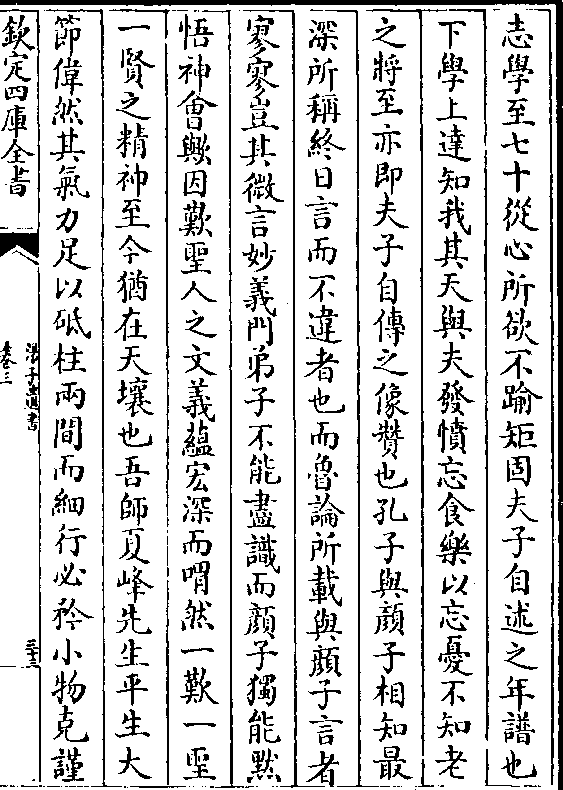 志學至七十從心所欲不踰矩固夫子自述之年譜也
下學上達知我其天與夫發憤忘食樂以忘憂不知老
之將至亦即夫子自傳之像贊也孔子與顔子相知最
深所稱終日言而不違者也而魯論所載與顔子言者
寥寥豈其微言妙義門弟子不能盡識而顔子獨能黙
悟神會歟因歎聖人之文義蘊宏深而喟然一歎一聖
一賢之精神至今猶在天壤也吾師夏峰先生平生大
節偉然其氣力足以砥柱兩間而細行必矜小物克謹
欽定四庫全書
湯子遺書
卷三
三十三